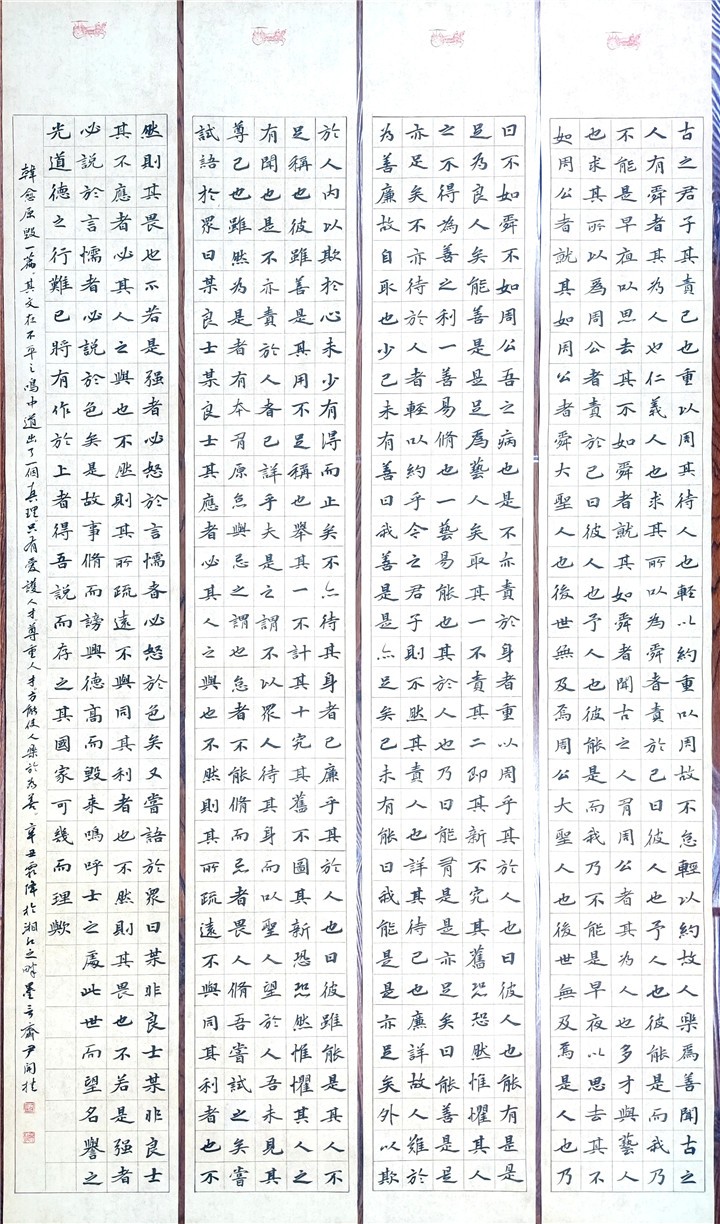 古之君子其責己也重以周其待人也輕以約重以周故不怠輕以約故人樂爲善聞古之
人有舜者其為人也仁義人也求其所以為舜者責於己曰彼人也予人也彼能是而我乃
不能是早夜以思去其不如舜者就其如舜者聞古之人有周公者其為人也多才與藝人
也求其所以爲周公者責於己曰彼人也予人也彼能是而我乃不能是早夜以思去其不
如周公者就其如周公者舜大聖人也後世無及焉周公大聖人也後世無及焉是人也乃
曰不如舜不如周公吾之病也是不亦責於身者重以周乎其於人也曰彼人也能有是是
足為良人矣能善是是足爲藝人矣取其一不責其二即其新不究其舊恐恐然惟懼其人
之不得為善之利一善易脩也一藝易能也其於人也乃曰能有是是亦足矣曰能善是是
亦足矣不亦待於人者輕以約乎今之君子則不然其責人也詳其待己也廉詳故人難於
為善廉故自取也少己未有善曰我善是是亦足矣己未有能曰我能是是亦足矣外以欺
於人內以欺於心未少有得而止矣不亦待其身者已廉乎其於人也曰彼雖能是其人不
足稱也彼雖善是其用不足稱也舉其一不計其十究其舊不圖其新恐恐然惟懼其人之
有聞也是不亦責於人者已詳乎夫是之謂不以眾人待其身而以聖人望於人吾未見其
尊己也雖然為是者有本有原怠與忌之謂也怠者不能脩而忌者畏人脩吾嘗試之矣嘗
試語於眾曰某良士某良士其應者必其人之與也不然則其所疏遠不與同其利者也不
然則其畏也不若是强者必怒於言懦者必怒於色矣又嘗語於眾曰某非良士某非良士
其不應者必其人之與也不然則其所疏遠不與同其利者也不然則其畏也不若是强者
必說於言懦者必說於色矣是故事脩而謗興德高而毀来嗚呼士之處此世而望名譽之
光道德之行難已將有作於上者得吾說而存之其國家可幾而理歟
韓愈原毀一篇其文在不平之鳴中道出了一個真理只有愛護人才尊重人才方能使人樂於為善 辛丑霜降於湘江之畔墨言齋尹開